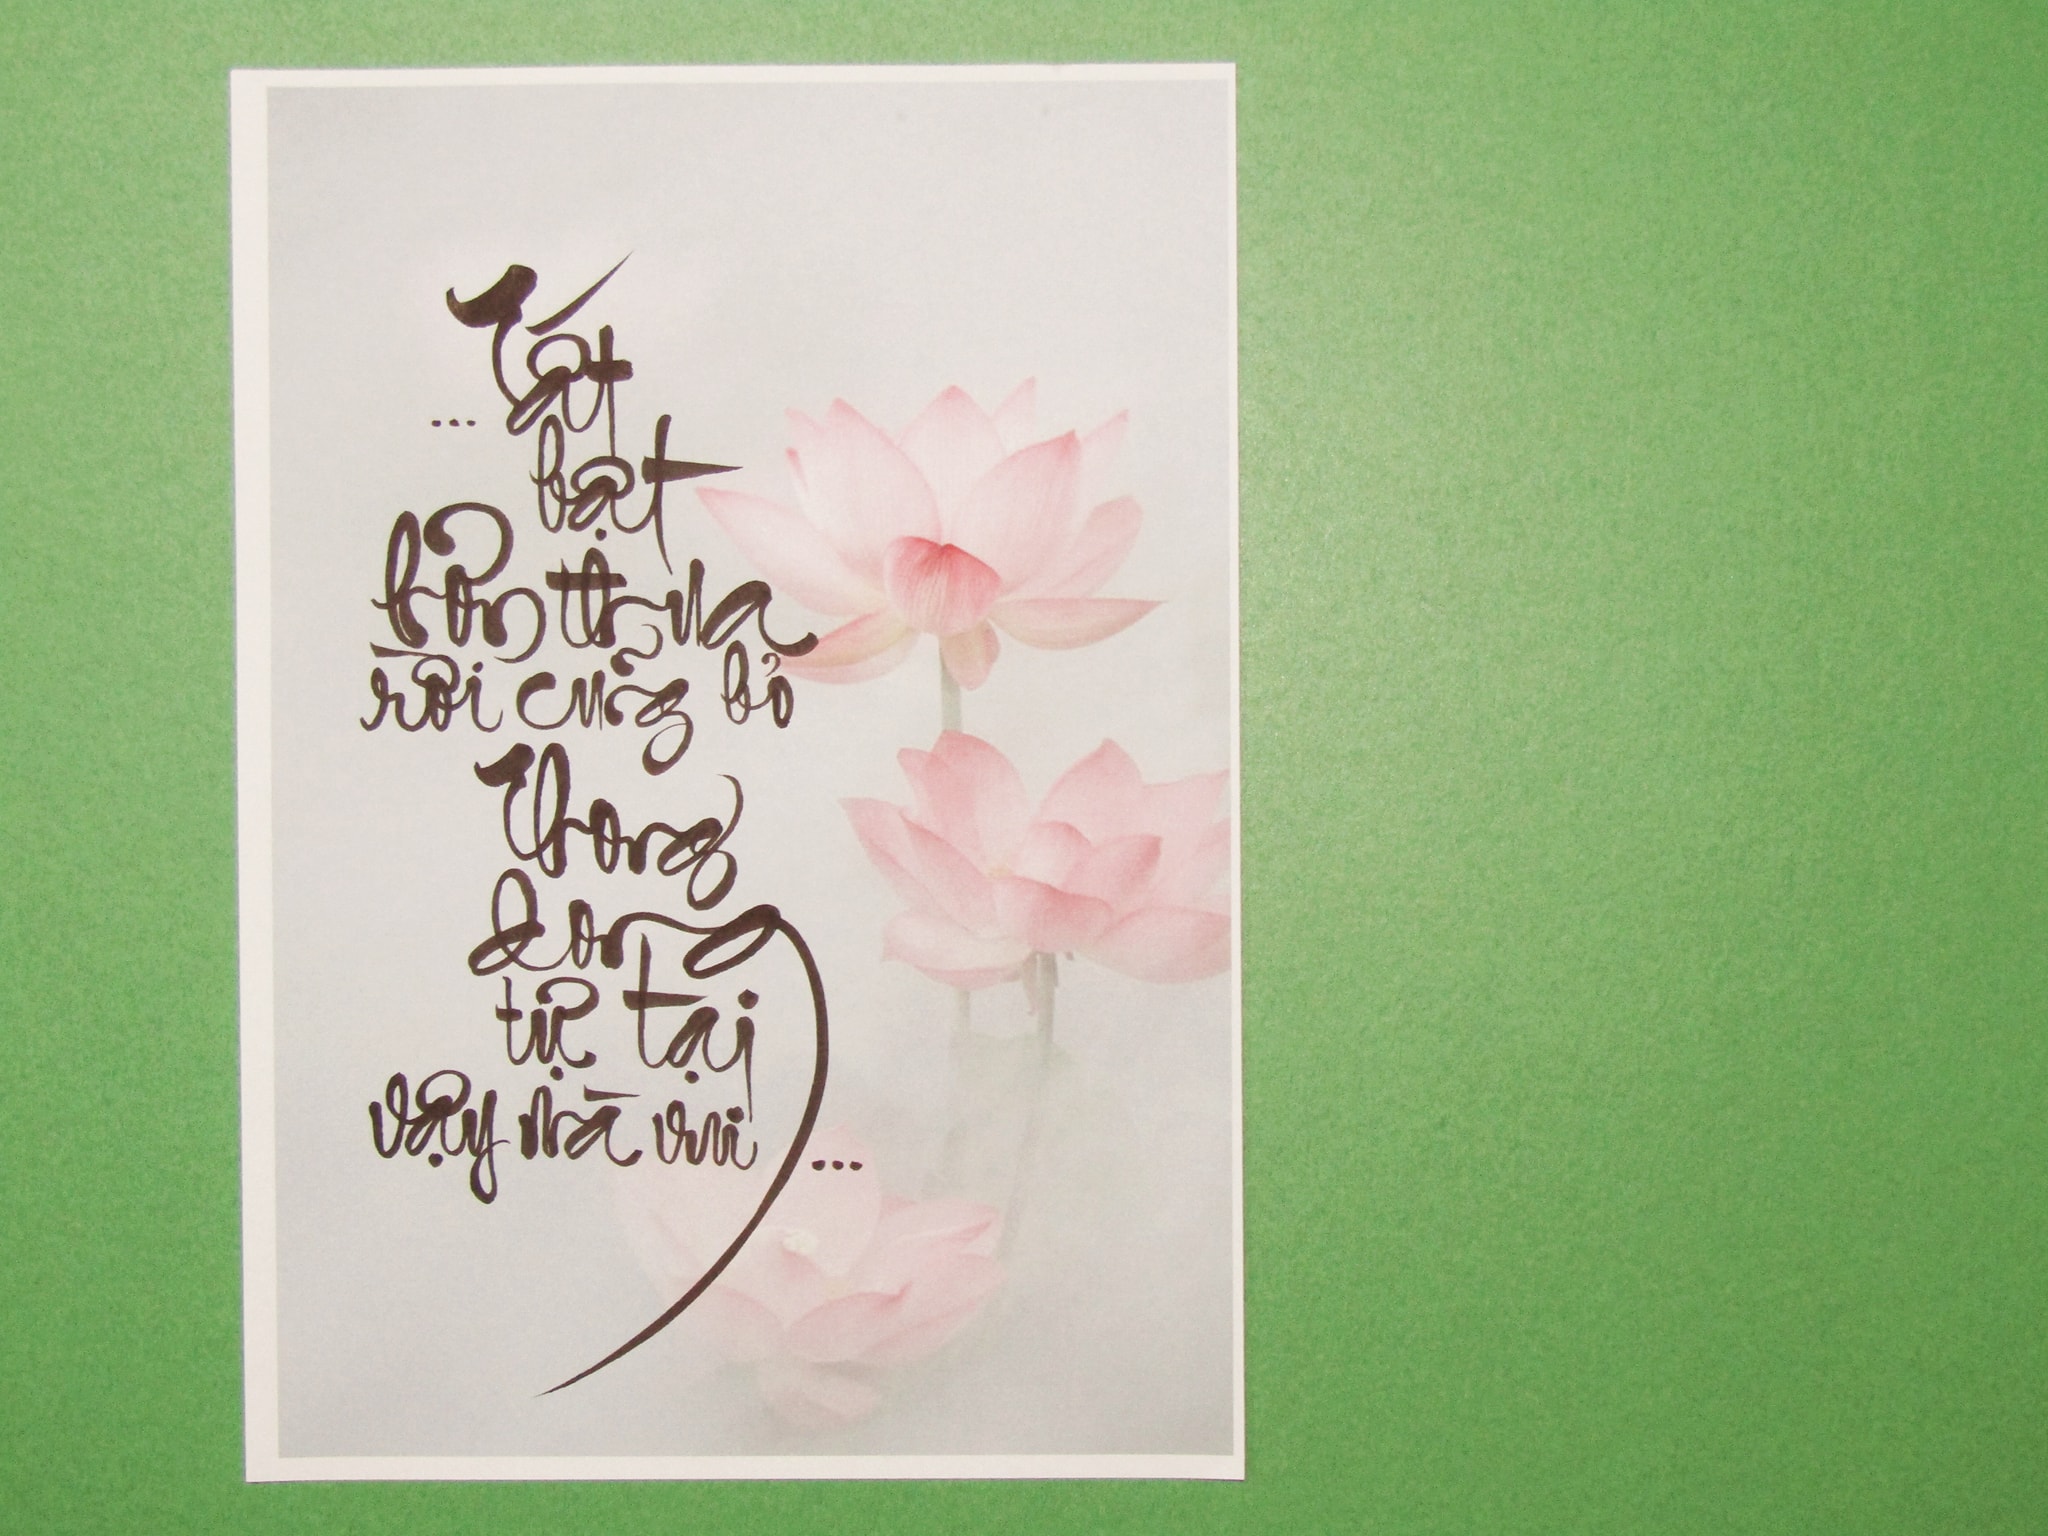 ... Tất
bật
hơn thua
rồi cũng bỏ
Thong
dong
tự tại
vậy mà vui ...